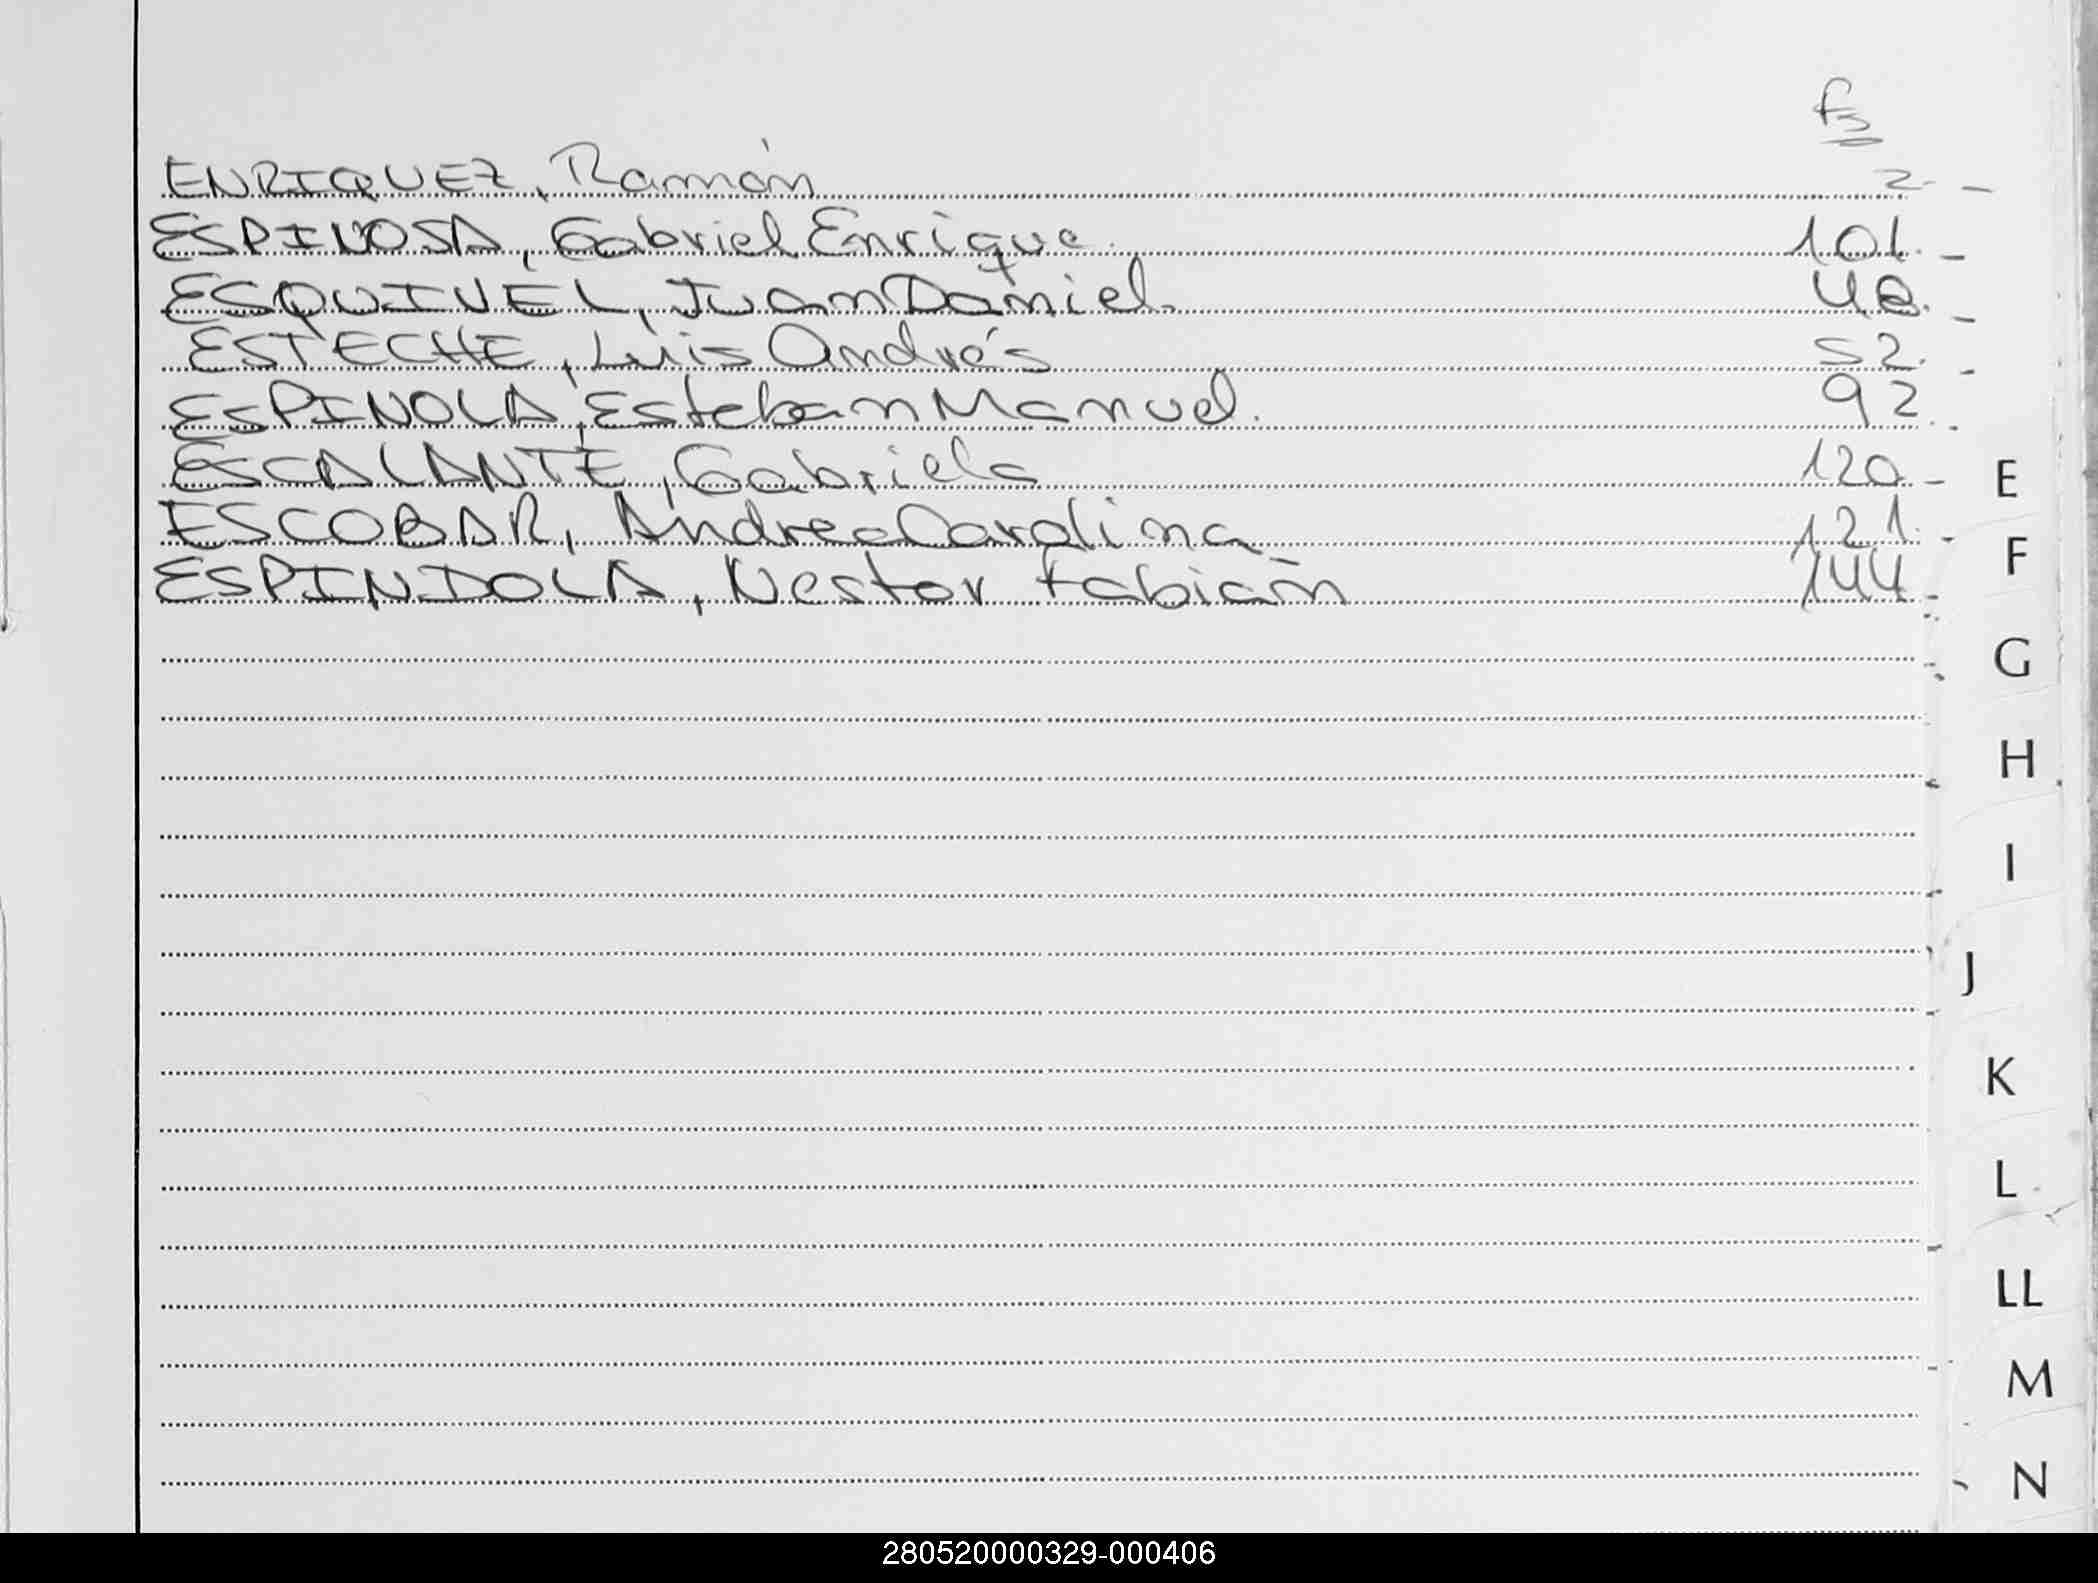 fs
ENRIQUEZ, Ramón 2-
ESPINOSA, Gabriel Enrique. 101.-
ESQUIVEL, Juan Daniel.
ESTECHE, Luis Andrés 52.-
ESPINOLA, Esteban Manuel. 92.-
ESCALANTE, Gabriela 120.-
ESCOBAR, Andrea Carolina 121.-
ESPINDOLA, Nestor Fabián 144.-
E
F
G
H
I
J
K
L
LL
M
N
280520000329-000406